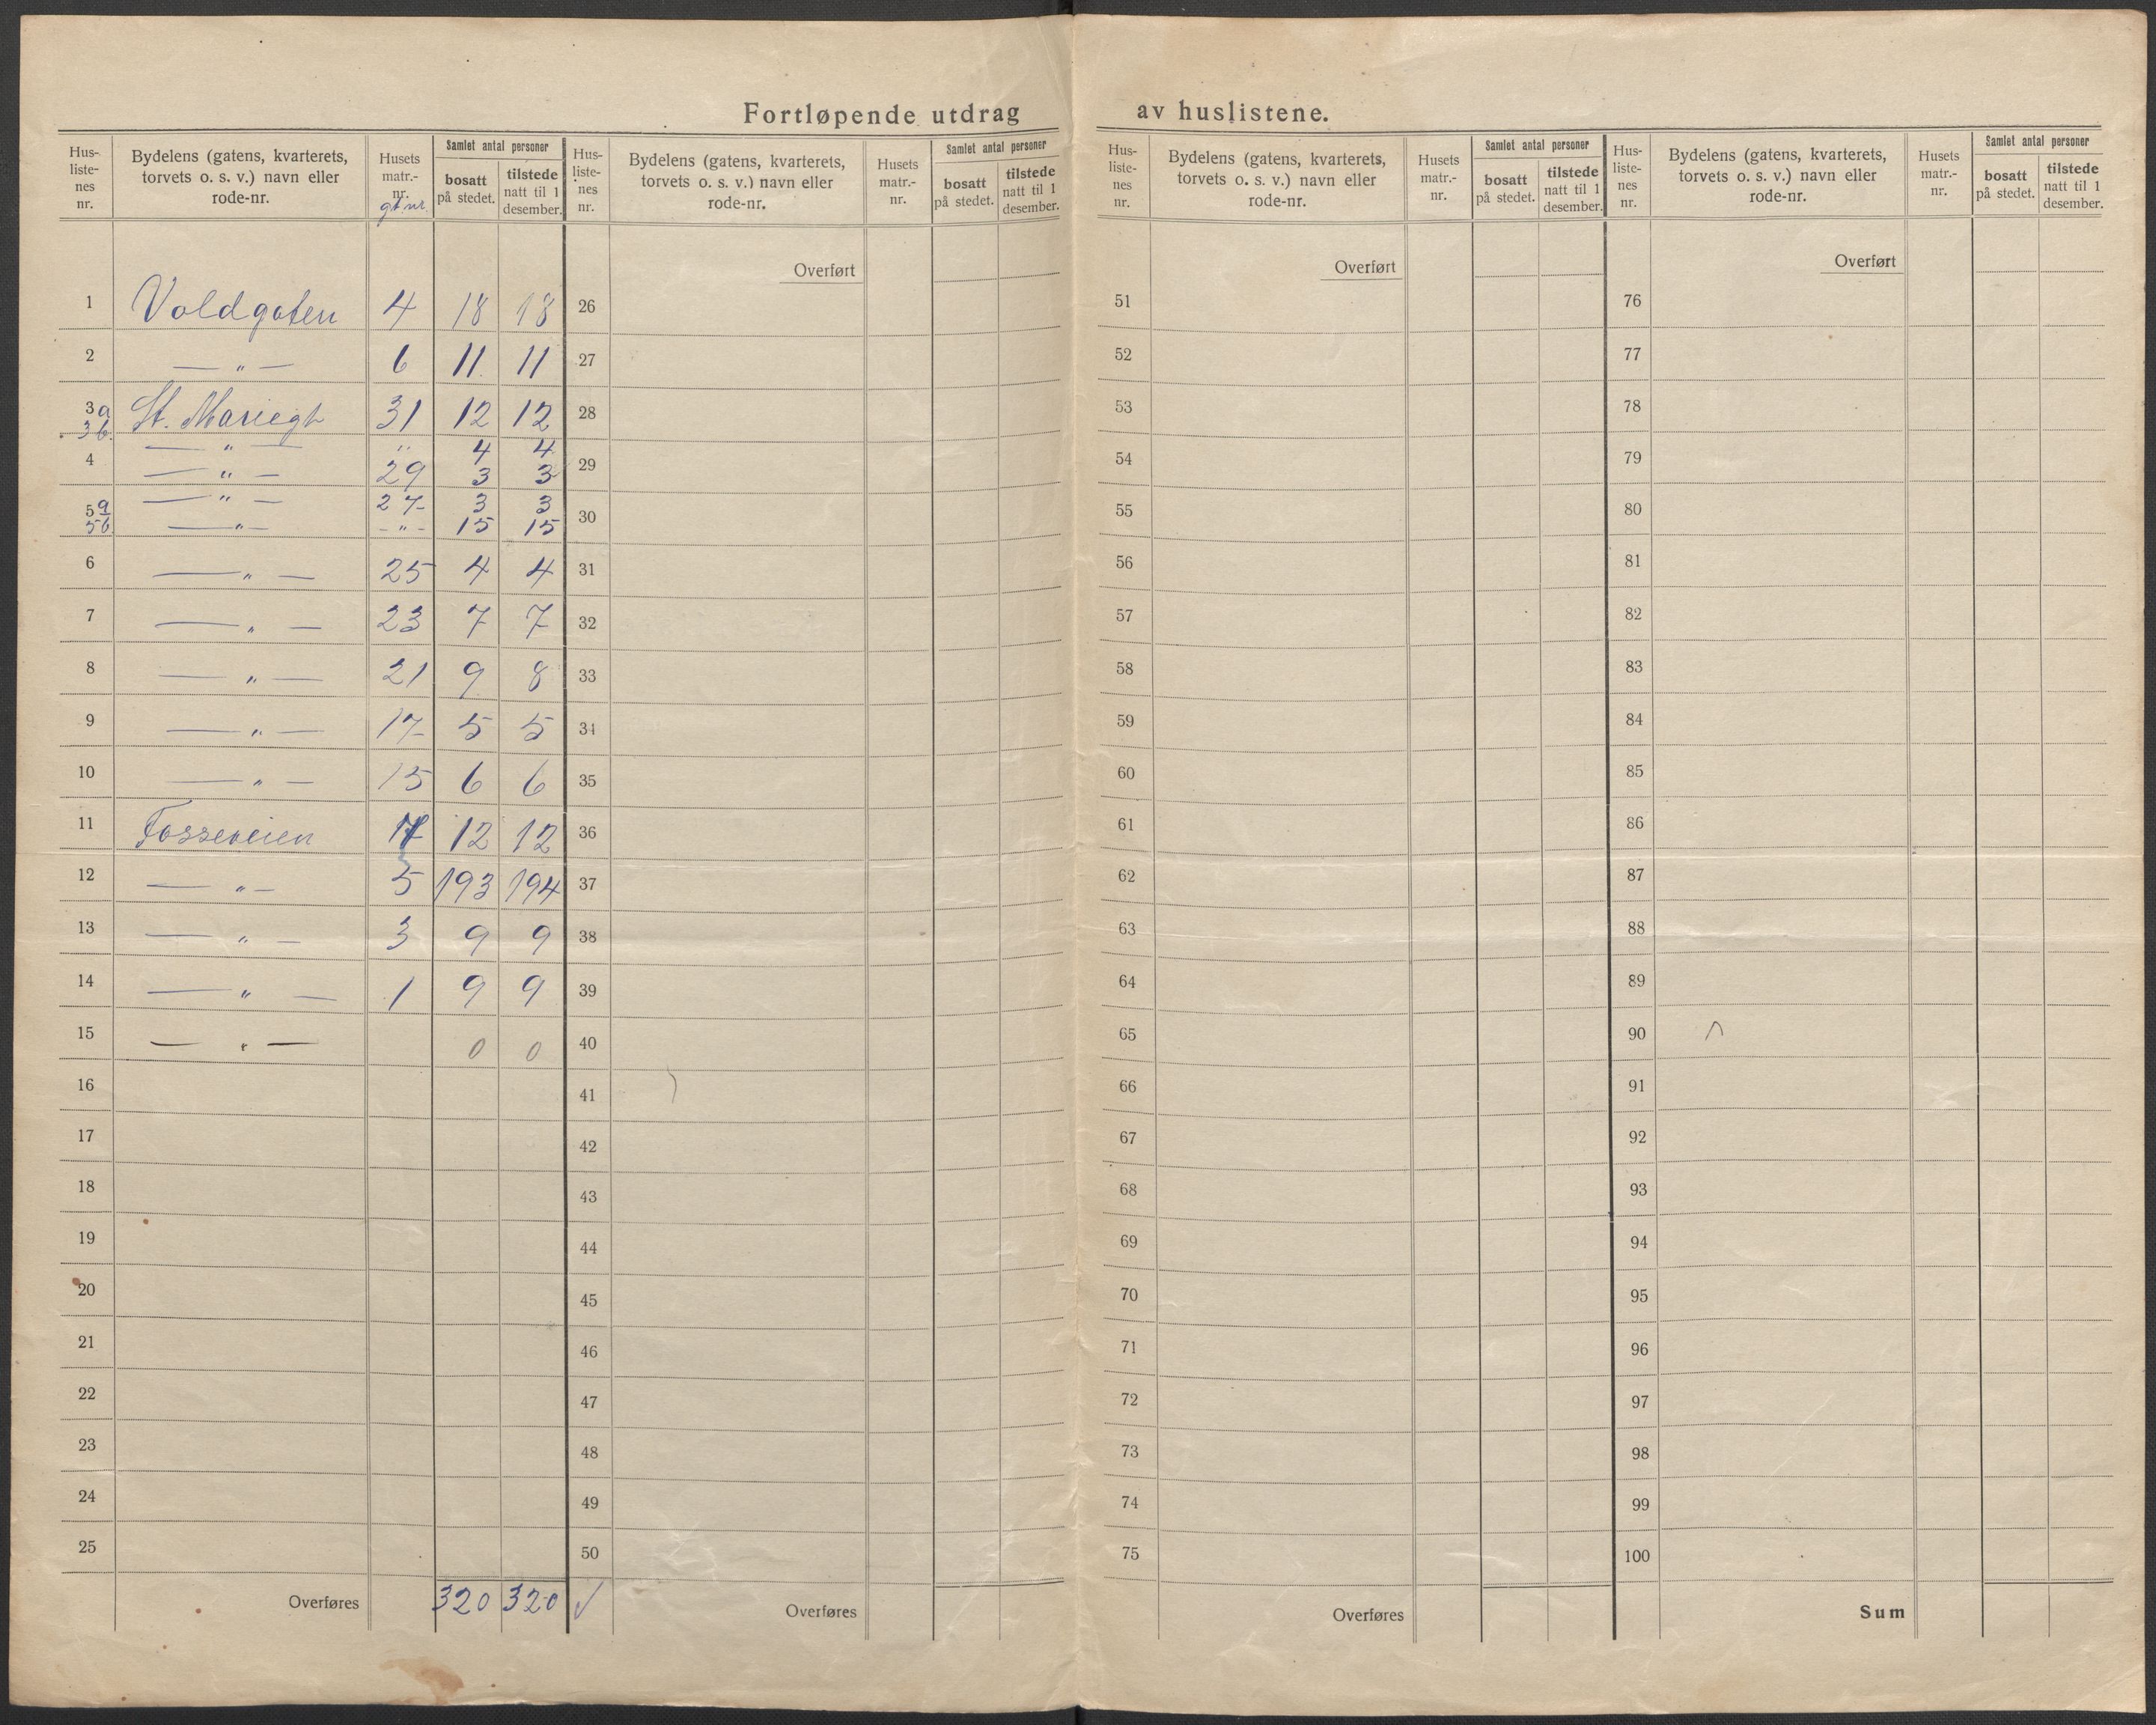 Fortløpende utdrag av huslistene.
Hus-listenes nr. | Bydelens (gatens, kvarterets, torvets o. s. v.) navn eller rode-nr. | Husets matr.-nr. gt nr. | Samlet antal personer | bosatt på stedet. | tilstede natt til 1 desember.
1 Voldgaten 4 18 18
2 — „ — 6 11 11
3a St. Mariegt 31 12 12
3b. — „ — „ 4 4
4 — „ — 29 3 3
5a — „ — 27 3 3
5b — „ — - „ - 15 15
6 — „ — 25 4 4
7 — „ — 23 7 7
8 — „ — 21 9 8
9 — „ — 17 5 5
10 — „ — 15 6 6
11 Fosseveien 12 12
12 — „ — 5 193 194
13 — „ — 3 9 9
14 — „ — 1 9 9
15 — „ — 0 0
16
17
18
19
20
21
22
23
24
25
Overføres 320 320 ✓
Hus-listenes nr. | Bydelens (gatens, kvarterets, torvets o. s. v.) navn eller rode-nr. | Husets matr.-nr. | Samlet antal personer | bosatt på stedet. | tilstede natt til 1 desember.
Overført
26
27
28
29
30
31
32
33
34
35
36
37
38
39
40
41
42
43
44
45
46
47
48
49
50
Overføres
Hus-listenes nr. | Bydelens (gatens, kvarterets, torvets o. s. v.) navn eller rode-nr. | Husets matr.-nr. | Samlet antal personer | bosatt på stedet. | tilstede natt til 1 desember.
Overført
51
52
53
54
55
56
57
58
59
60
61
62
63
64
65
66
67
68
69
70
71
72
73
74
75
Overføres
Hus-listenes nr. | Bydelens (gatens, kvarterets, torvets o. s. v.) navn eller rode-nr. | Husets matr.-nr. | Samlet antal personer | bosatt på stedet. | tilstede natt til 1 desember.
Overført
76
77
78
79
80
81
82
83
84
85
86
87
88
89
90
91
92
93
94
95
96
97
98
99
100
Sum